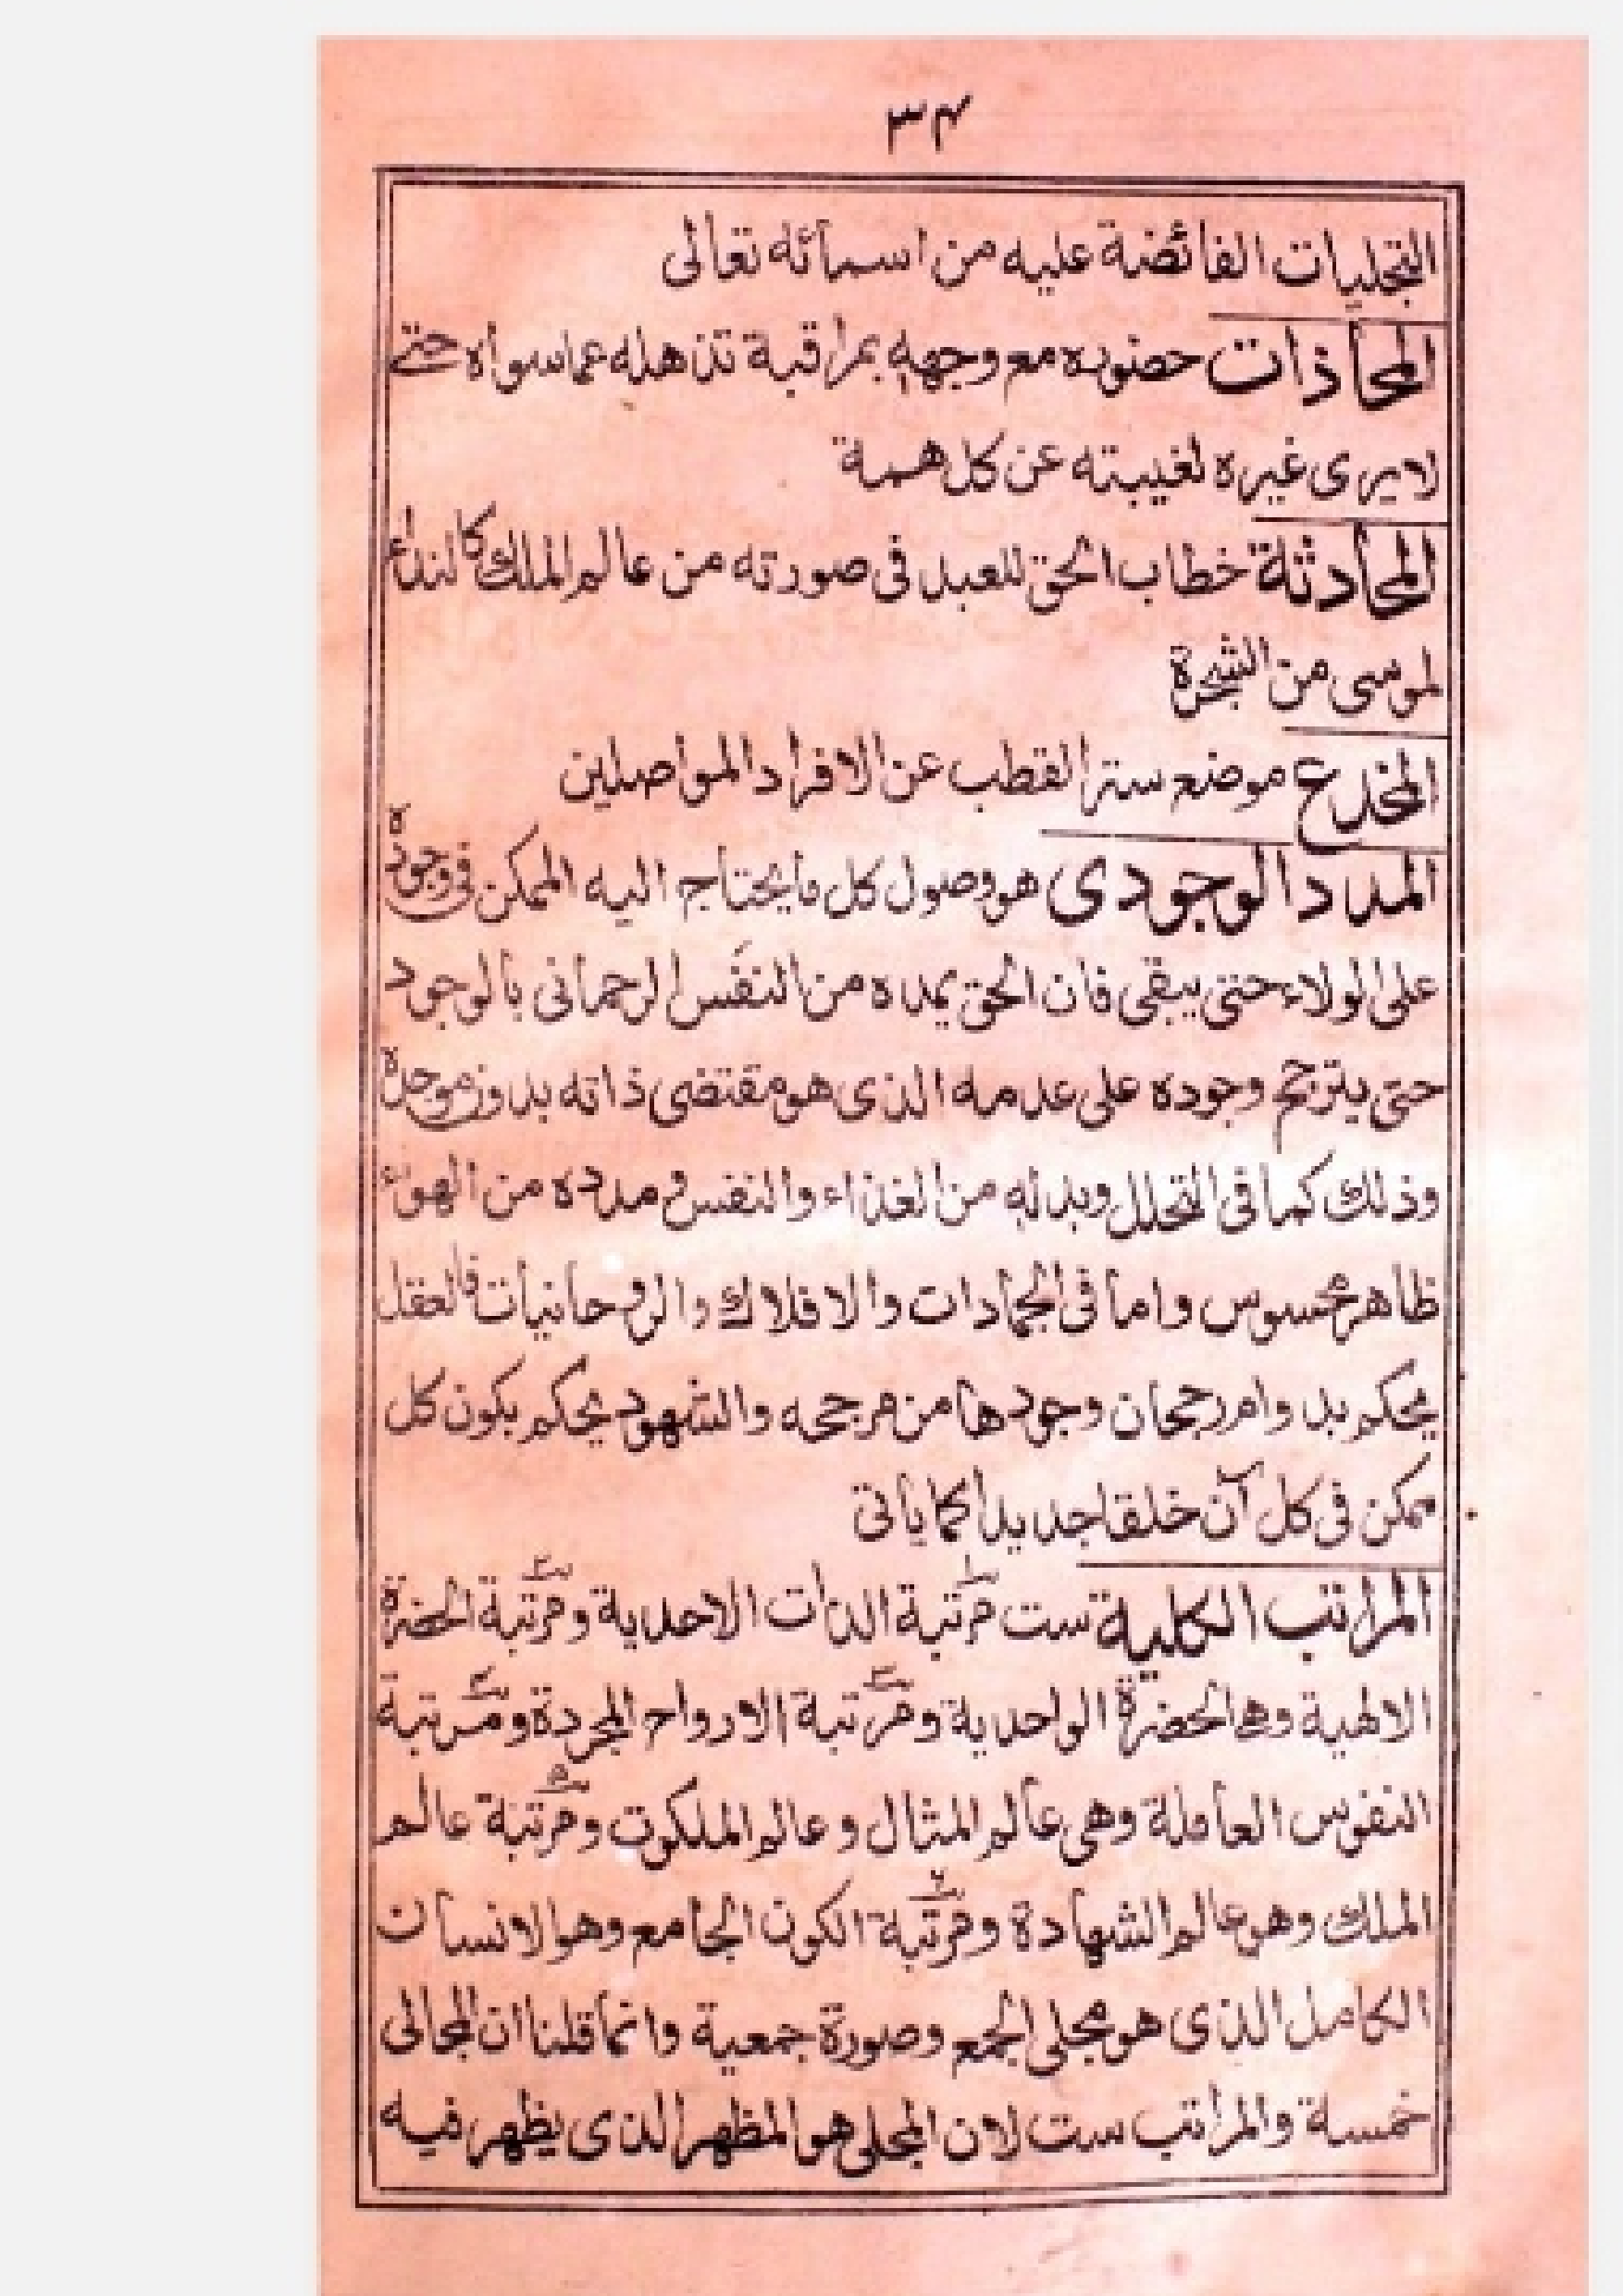 ۳۴
التجليات الفائضة عليه من اسمائه تعالى
المحاذات حضوره مع وجهه بمراقبة تذهله عما سواه حتے
لا يرى غيره لغيبته عن كل همة
المحادثة خطاب الحق للعبد فى صورته من عالم الملك كالنداء
لموسى من الشجرة
المخدع موضع ستر القطب عن الافراد المواصلين
المدد الوجودى هو وصول كل ما يحتاج اليه الممكن فى وجوده
على الولاء حتى يبقى فان الحق يمده من النفَس الرحمانى بالوجود
حتى يترجح وجوده على عدمه الذى هو مقتضى ذاته بدون موجده
وذلك كما فى التحلل وبدله من الغذاء والنفس ومدده من الهواء
ظاهر محسوس واما فى الجمادات والافلاك والروحانيات فالعقل
يحكم بدوام رجحان وجودها من مرجحه والشهود يحكم بكون كل
ممكن فى كل آن خلقا جديدا كما ياتى
المراتب الكلية ست مرتبة الذات الاحدية ومرتبة الحضرة
الالهية وهے الحضرة الواحدية ومرتبة الارواح المجردة ومرتبة
النفوس العاملة وهى عالم المثال وعالم الملكوت ومرتبة عالم
الملك وهو عالم الشهادة ومرتبة الكون الجامع وهو الانسان
الكامل الذى هو مجلى الجمع وصورة جمعية وانما قلنا ان المجالى
خمسة والمراتب ست لان المجلى هو المظهر الذى يظهر فيه